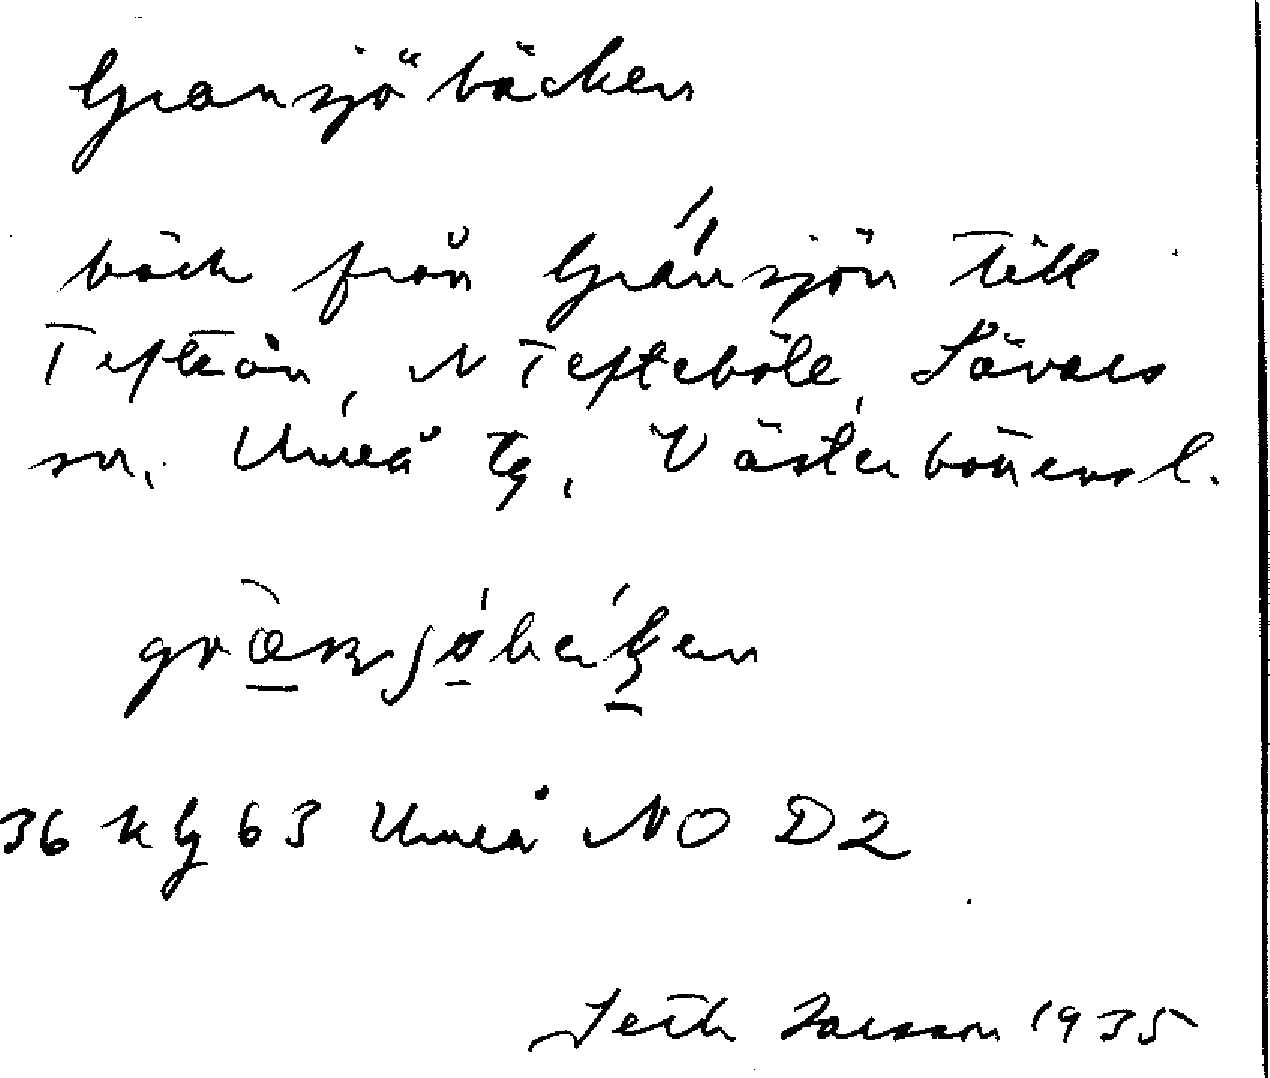 Gransjöbäcken
bäck från Gransjön till
Tefteån, N Tefteböle, Sävars
sn. Umeå tg, Västerbottens l.
36 KG 63 Umeå NO D2
Seth Larsson 1935